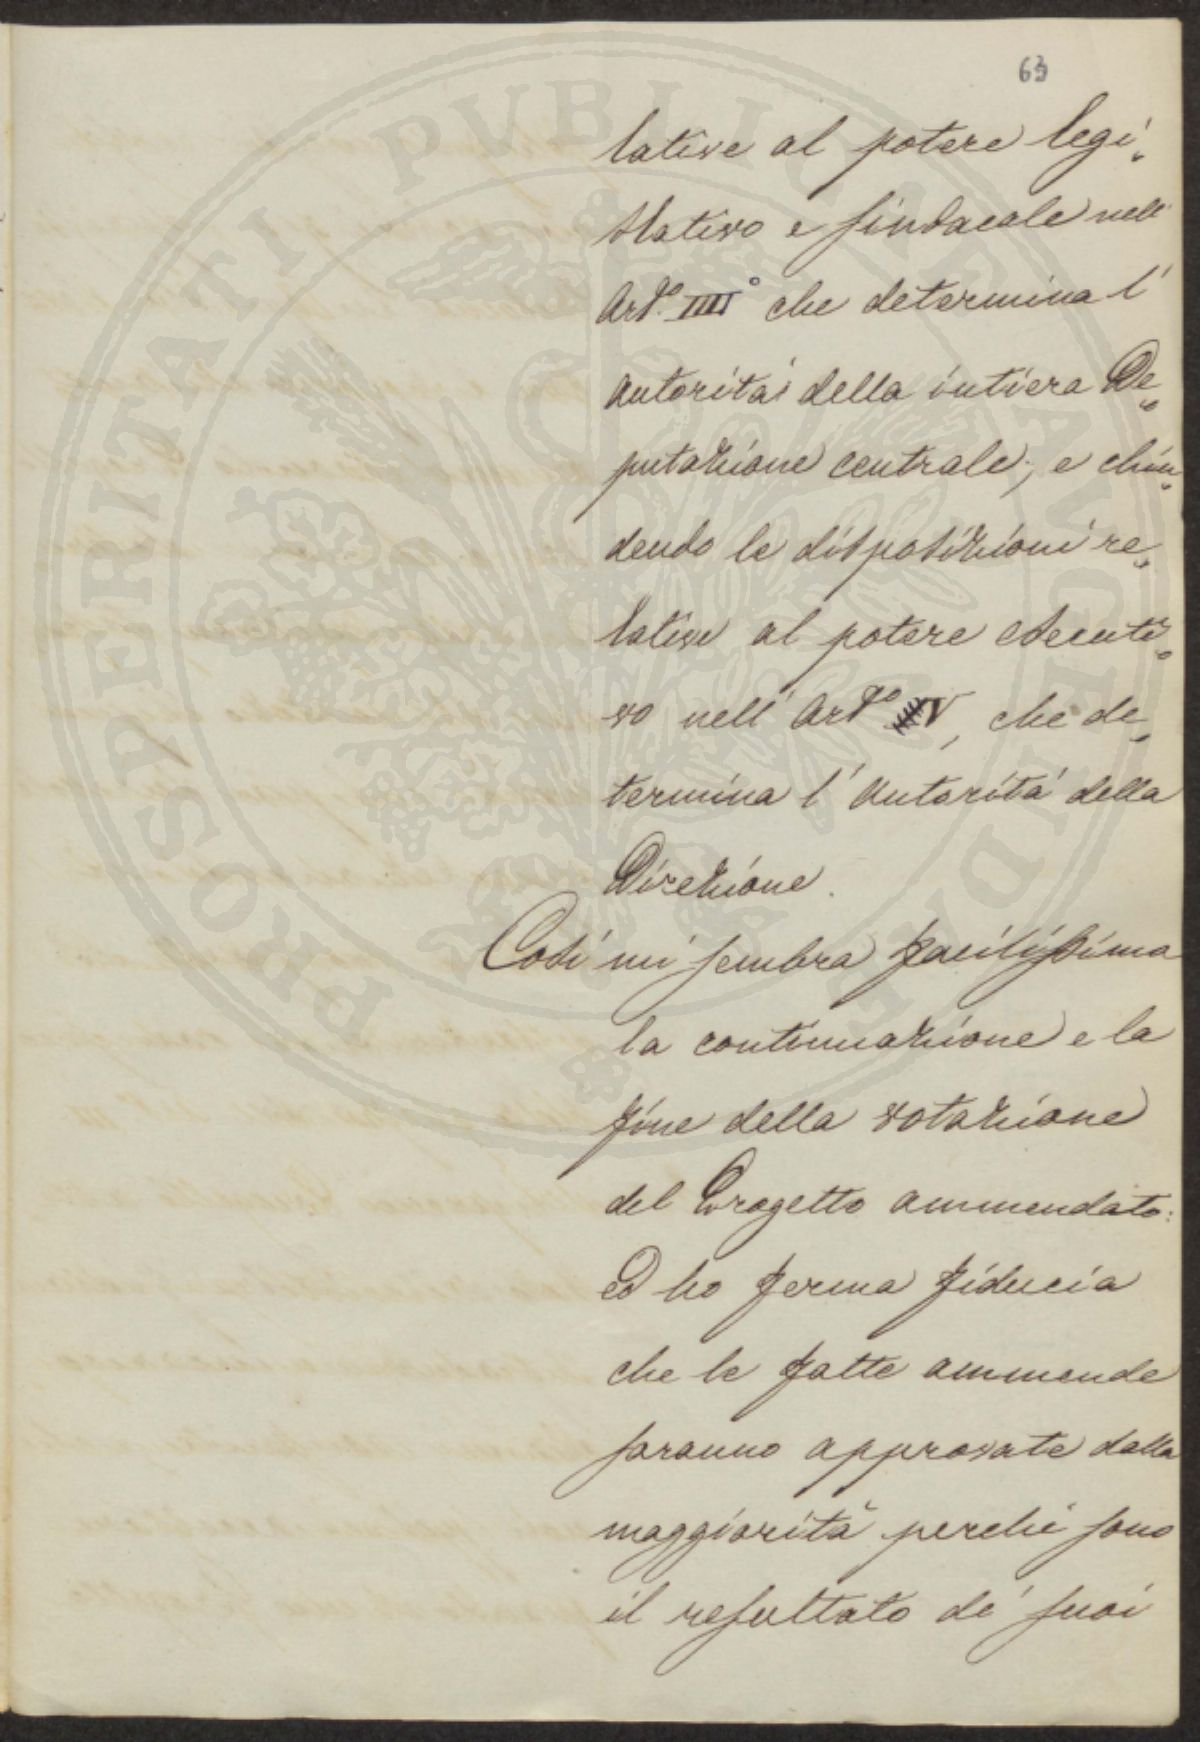 63
PROSPERITATI PVBLICAE AVGENDAE
lative al potere legi„
slativo e sindacale nell'
Art.º IIII° che determina l'
autorità della intiera De„
putazione centrale; e chiu„
dendo le disposizioni re„
lative al potere esecuti„
vo nell'Artº V, che de„
termina l'autorità della
Direzione.
Così mi sembra facilissima
la continuazione e la
fine della votazione
del Progetto ammendato:
Ed ho ferma fiducia
che le fatte ammende
saranno approvate dalla
maggiorità perchè sono
il resultato de' suoi